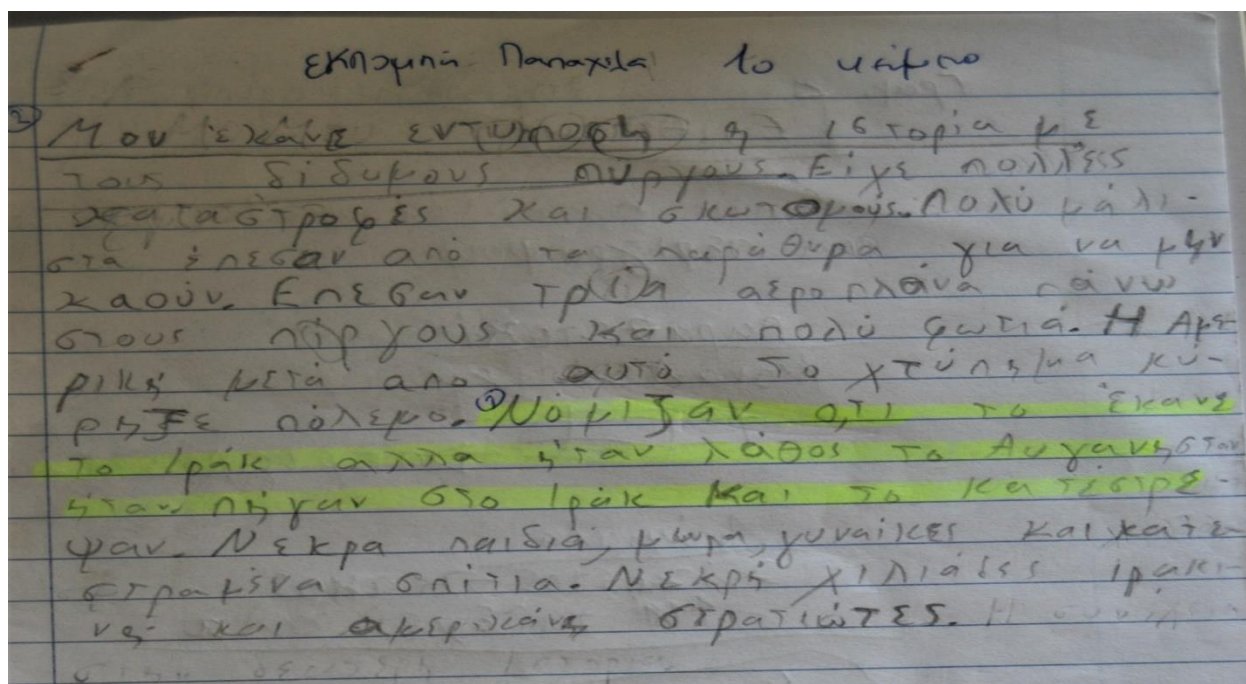 εκπομπή Παπαχελα 1ο κείμενο
2 Μου έκανε εντυποση η ιστορία με
τους δίδυμους πυργους. Είχε πολλές
καταστροφές και σκωτομούς. Πολύ μάλι-
στα έπεσαν από τα παράθυρα για να μην
καούν. Επεσαν τρία αεροπλάνα πάνω
στους πύργους και πολύ φωτιά. Η Αμε-
ρική μετά απο αυτό το χτύπημα κύ-
ρηξε πόλεμο. 1 Νόμιζαν οτι το έκανε
το Ιράκ αλλα ήταν λάθος το Αυγανηστάν
ήταν. πήγαν στο Ιράκ και το κατέστρε-
ψαν. Νεκρα παιδιά, μωρα, γυναίκες και κατε-
στραμένα σπίτια. Νεκρή χιλιάδες ιρακι-
νη και αμερικάνη στρατιώτες. Η
στην δεύτερη ιστορία